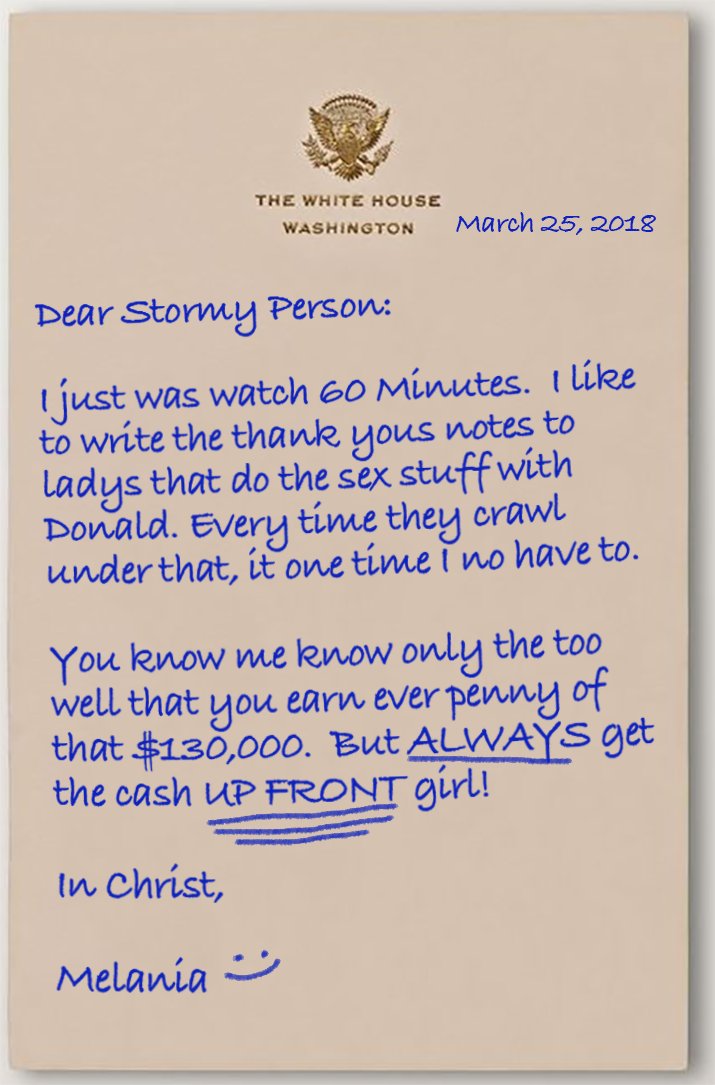 THE WHITE HOUSE
WASHINGTON
March 25, 2018
Dear Stormy Person:
I just was watch 60 Minutes. I like
to write the thank yous notes to
ladys that do the sex stuff with
Donald. Every time they crawl
under that, it one time I no have to.
You know me know only the too
well that you earn ever penny of
that $130,000. But ALWAYS get
the cash UP FRONT girl!
In Christ,
Melania